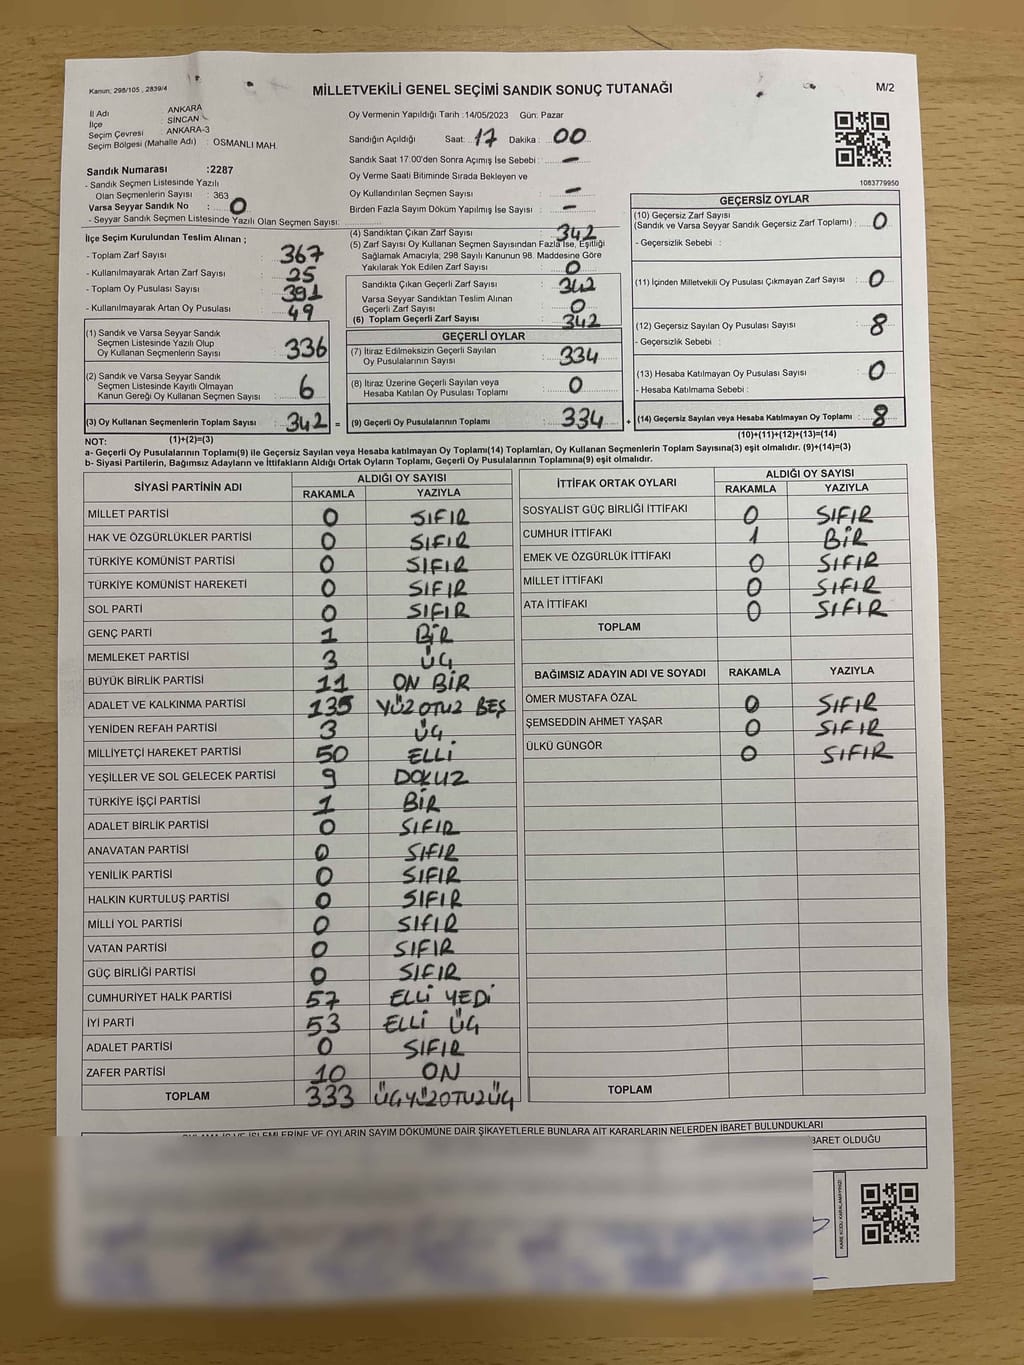 Kanun; 298/105 , 2839/4
MİLLETVEKİLİ GENEL SEÇİMİ SANDIK SONUÇ TUTANAĞI
M/2
İl Adı : ANKARA
İlçe : SİNCAN
Seçim Çevresi : ANKARA-3
Seçim Bölgesi (Mahalle Adı) : OSMANLI MAH.
Sandık Numarası :2287
- Sandık Seçmen Listesinde Yazılı
Olan Seçmenlerin Sayısı : 363
Varsa Seyyar Sandık No : 0
- Seyyar Sandık Seçmen Listesinde Yazılı Olan Seçmen Sayısı:
Oy Vermenin Yapıldığı Tarih :14/05/2023 Gün: Pazar
Sandığın Açıldığı Saat: 17 Dakika : 00
Sandık Saat 17.00'den Sonra Açımış İse Sebebi : –
Oy Verme Saati Bitiminde Sırada Bekleyen ve
Oy Kullandırılan Seçmen Sayısı : –
Birden Fazla Sayım Döküm Yapılmış İse Sayısı : –
1083779950
İlçe Seçim Kurulundan Teslim Alınan ;
- Toplam Zarf Sayısı : 367
- Kullanılmayarak Artan Zarf Sayısı : 25
- Toplam Oy Pusulası Sayısı : 391
- Kullanılmayarak Artan Oy Pusulası : 49
(1) Sandık ve Varsa Seyyar Sandık
Seçmen Listesinde Yazılı Olup
Oy Kullanan Seçmenlerin Sayısı : 336
(2) Sandık ve Varsa Seyyar Sandık
Seçmen Listesinde Kayıtlı Olmayan
Kanun Gereği Oy Kullanan Seçmen Sayısı : 6
(3) Oy Kullanan Seçmenlerin Toplam Sayısı : 342 =
(4) Sandıktan Çıkan Zarf Sayısı : 342
(5) Zarf Sayısı Oy Kullanan Seçmen Sayısından Fazla İse, Eşitliği
Sağlamak Amacıyla; 298 Sayılı Kanunun 98. Maddesine Göre
Yakılarak Yok Edilen Zarf Sayısı : 0
Sandıkta Çıkan Geçerli Zarf Sayısı : 342
Varsa Seyyar Sandıktan Teslim Alınan
Geçerli Zarf Sayısı : 0
(6) Toplam Geçerli Zarf Sayısı : 342
GEÇERLİ OYLAR
(7) İtiraz Edilmeksizin Geçerli Sayılan
Oy Pusulalarının Sayısı : 334
(8) İtiraz Üzerine Geçerli Sayılan veya
Hesaba Katılan Oy Pusulası Toplamı : 0
(9) Geçerli Oy Pusulalarının Toplamı : 334 +
GEÇERSİZ OYLAR
(10) Geçersiz Zarf Sayısı
(Sandık ve Varsa Seyyar Sandık Geçersiz Zarf Toplamı) : 0
- Geçersizlik Sebebi :
(11) İçinden Milletvekili Oy Pusulası Çıkmayan Zarf Sayısı : 0
(12) Geçersiz Sayılan Oy Pusulası Sayısı : 8
- Geçersizlik Sebebi :
(13) Hesaba Katılmayan Oy Pusulası Sayısı : 0
- Hesaba Katılmama Sebebi :
(14) Geçersiz Sayılan veya Hesaba Katılmayan Oy Toplamı : 8
NOT: (1)+(2)=(3)
(10)+(11)+(12)+(13)=(14)
a- Geçerli Oy Pusulalarının Toplamı(9) ile Geçersiz Sayılan veya Hesaba katılmayan Oy Toplamı(14) Toplamları, Oy Kullanan Seçmenlerin Toplam Sayısına(3) eşit olmalıdır. (9)+(14)=(3)
b- Siyasi Partilerin, Bağımsız Adayların ve İttifakların Aldığı Ortak Oyların Toplamı, Geçerli Oy Pusulalarının Toplamına(9) eşit olmalıdır.
SİYASİ PARTİNİN ADI ALDIĞI OY SAYISI
RAKAMLA YAZIYLA
MİLLET PARTİSİ 0 SIFIR
HAK VE ÖZGÜRLÜKLER PARTİSİ 0 SIFIR
TÜRKİYE KOMÜNİST PARTİSİ 0 SIFIR
TÜRKİYE KOMÜNİST HAREKETİ 0 SIFIR
SOL PARTİ 0 SIFIR
GENÇ PARTİ 1 BİR
MEMLEKET PARTİSİ 3 ÜÇ
BÜYÜK BİRLİK PARTİSİ 11 ON BİR
ADALET VE KALKINMA PARTİSİ 135 YÜZOTUZ BEŞ
YENİDEN REFAH PARTİSİ 3 ÜÇ
MİLLİYETÇİ HAREKET PARTİSİ 50 ELLİ
YEŞİLLER VE SOL GELECEK PARTİSİ 9 DOKUZ
TÜRKİYE İŞÇİ PARTİSİ 1 BİR
ADALET BİRLİK PARTİSİ 0 SIFIR
ANAVATAN PARTİSİ 0 SIFIR
YENİLİK PARTİSİ 0 SIFIR
HALKIN KURTULUŞ PARTİSİ 0 SIFIR
MİLLİ YOL PARTİSİ 0 SIFIR
VATAN PARTİSİ 0 SIFIR
GÜÇ BİRLİĞİ PARTİSİ 0 SIFIR
CUMHURİYET HALK PARTİSİ 57 ELLİ YEDİ
İYİ PARTİ 53 ELLİ ÜÇ
ADALET PARTİSİ 0 SIFIR
ZAFER PARTİSİ 10 ON
TOPLAM 333 ÜÇYÜZOTUZÜÇ
İTTİFAK ORTAK OYLARI ALDIĞI OY SAYISI
RAKAMLA YAZIYLA
SOSYALİST GÜÇ BİRLİĞİ İTTİFAKI 0 SIFIR
CUMHUR İTTİFAKI 1 BİR
EMEK VE ÖZGÜRLÜK İTTİFAKI 0 SIFIR
MİLLET İTTİFAKI 0 SIFIR
ATA İTTİFAKI 0 SIFIR
TOPLAM
BAĞIMSIZ ADAYIN ADI VE SOYADI RAKAMLA YAZIYLA
ÖMER MUSTAFA ÖZAL 0 SIFIR
ŞEMSEDDİN AHMET YAŞAR 0 SIFIR
ÜLKÜ GÜNGÖR 0 SIFIR
TOPLAM
İŞLEMLERİNE VE OYLARIN SAYIM DÖKÜMÜNE DAİR ŞİKAYETLERLE BUNLARA AİT KARARLARIN NELERDEN İBARET BULUNDUKLARI
İBARET OLDUĞU
KARE KODU KARALAMAYINIZ!